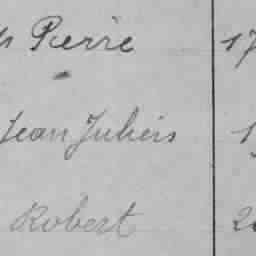 Pierre 17
Jean Julien 1
Robert 2